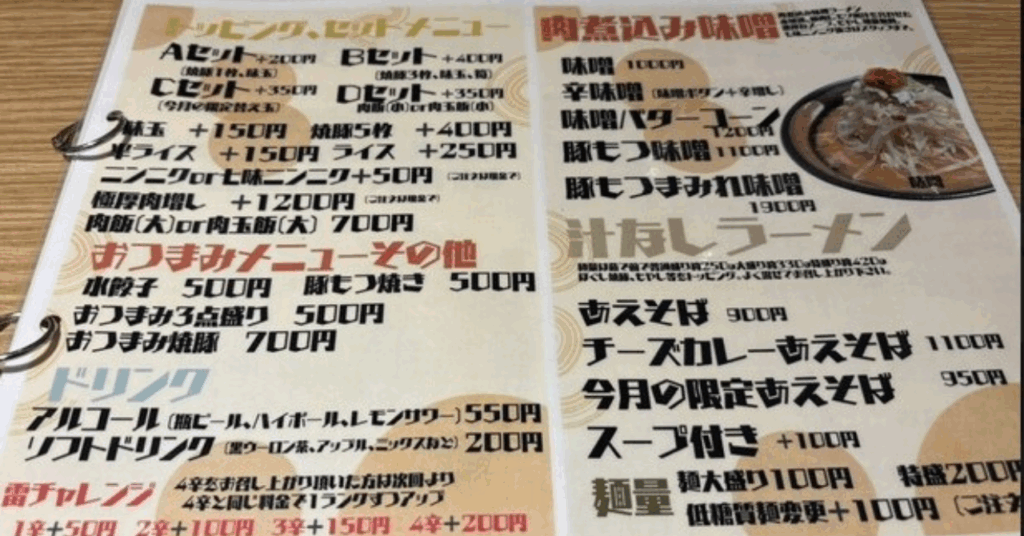 トッピング、セットメニュー
Aセット+200円 Bセット+400円
(焼豚1枚、味玉) (焼豚3枚、味玉、筍)
Cセット+350円 Dセット+350円
(今月の限定替え玉) 肉飯(小)or肉玉飯(小)
味玉 +150円 焼豚5枚 +400円
半ライス +150円 ライス +250円
ニンニクor七味ニンニク+50円 (ご注文は現金で)
極厚肉増し +1200円 (ご注文は現金で)
肉飯(大)or肉玉飯(大) 700円
おつまみメニューその他
水餃子 500円 豚もつ焼き 500円
おつまみ3点盛り 500円
おつまみ焼豚 700円
ドリンク
アルコール(瓶ビール、ハイボール、レモンサワー)550円
ソフトドリンク(黒ウーロン茶、アップル、ニックスなど)200円
雷チャレンジ
4辛をお召し上がり頂いた方は次回より
4辛と同じ料金で1ランクずつアップ
1辛+50円 2辛+100円 3辛+150円 4辛+200円
肉煮込み味噌
味噌 1000円
辛味噌 (味噌ボタン+辛増し)
味噌バターコーン
1200円
豚もつ味噌 1100円
豚もつまみれ味噌
1900円
汁なしラーメン
あえそば 900円
チーズカレーあえそば 1100円
今月の限定あえそば 950円
スープ付き +100円
麺量
麺大盛り100円 特盛200円
低糖質麺変更+100円 (ご注文